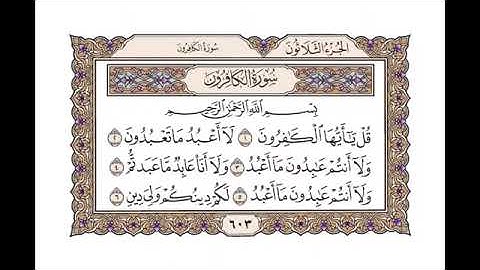 الجزء الثلاثون
سورة الكافرون
سورة الكافرون
بسم الله الرحمن الرحيم
قُلْ يَـٰٓأَيُّهَا ٱلْكَـٰفِرُونَ ١ لَآ أَعْبُدُ مَا تَعْبُدُونَ ٢
وَلَآ أَنتُمْ عَـٰبِدُونَ مَآ أَعْبُدُ ٣ وَلَآ أَنَا۠ عَابِدٌ مَّا عَبَدتُّمْ ٤
وَلَآ أَنتُمْ عَـٰبِدُونَ مَآ أَعْبُدُ ٥ لَكُمْ دِينُكُمْ وَلِىَ دِينِ ٦
٦٠٣